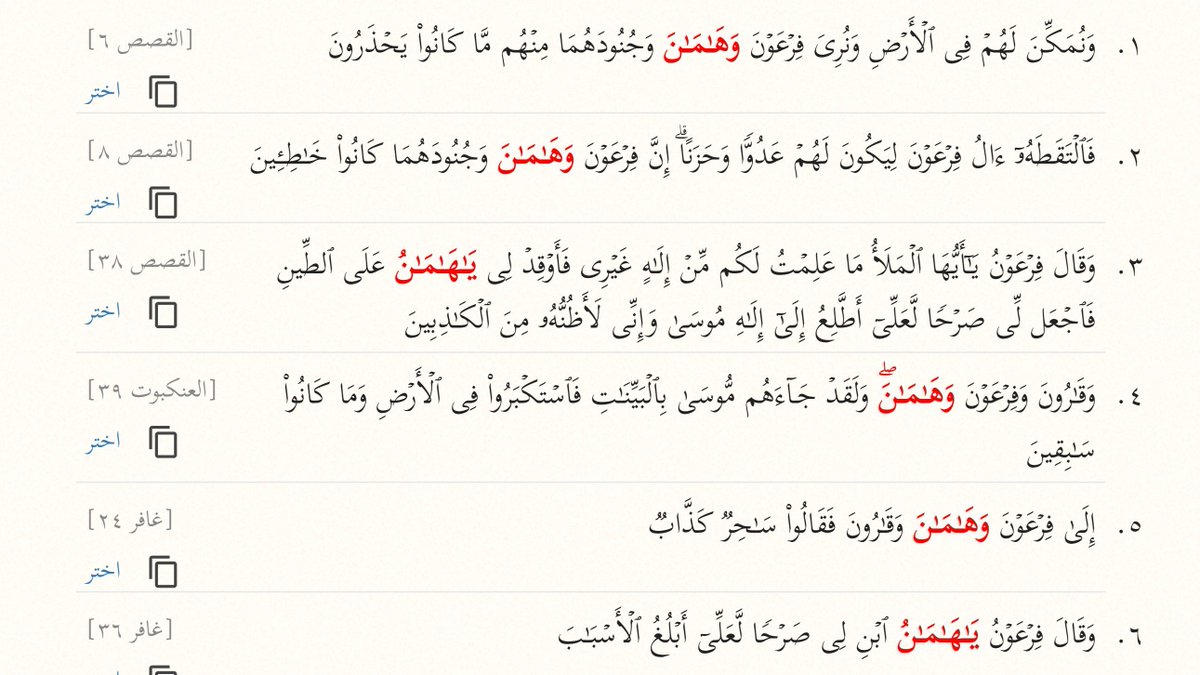 ١. وَنُمَكِّنَ لَهُمۡ فِى ٱلۡأَرۡضِ وَنُرِىَ فِرۡعَوۡنَ وَهَـٰمَـٰنَ وَجُنُودَهُمَا مِنۡهُم مَّا كَانُوا۟ يَحۡذَرُونَ [القصص ٦]
اختر
٢. فَٱلۡتَقَطَهُۥۤ ءَالُ فِرۡعَوۡنَ لِیَكُونَ لَهُمۡ عَدُوࣰّا وَحَزَنًاۗ إِنَّ فِرۡعَوۡنَ وَهَـٰمَـٰنَ وَجُنُودَهُمَا كَانُوا۟ خَـٰطِـِٔینَ [القصص ٨]
اختر
٣. وَقَالَ فِرۡعَوۡنُ يَـٰۤأَيُّهَا ٱلۡمَلَأُ مَا عَلِمۡتُ لَكُم مِّنۡ إِلَـٰهٍ غَيۡرِى فَأَوۡقِدۡ لِى يَـٰهَـٰمَـٰنُ عَلَى ٱلطِّينِ [القصص ٣٨]
فَٱجۡعَل لِّى صَرۡحࣰا لَّعَلِّىۤ أَطَّلِعُ إِلَىٰۤ إِلَـٰهِ مُوسَىٰ وَإِنِّى لَأَظُنُّهُۥ مِنَ ٱلۡكَـٰذِبِينَ
اختر
٤. وَقَـٰرُونَ وَفِرۡعَوۡنَ وَهَـٰمَـٰنَۖ وَلَقَدۡ جَاۤءَهُم مُّوسَىٰ بِٱلۡبَيِّنَـٰتِ فَٱسۡتَكۡبَرُوا۟ فِى ٱلۡأَرۡضِ وَمَا كَانُوا۟ [العنكبوت ٣٩]
سَـٰبِقِينَ
اختر
٥. إِلَىٰ فِرۡعَوۡنَ وَهَـٰمَـٰنَ وَقَـٰرُونَ فَقَالُوا۟ سَـٰحِرࣱ كَذَّابࣱ [غافر ٢٤]
اختر
٦. وَقَالَ فِرۡعَوۡنُ يَـٰهَـٰمَـٰنُ ٱبۡنِ لِى صَرۡحࣰا لَّعَلِّىۤ أَبۡلُغُ ٱلۡأَسۡبَـٰبَ [غافر ٣٦]